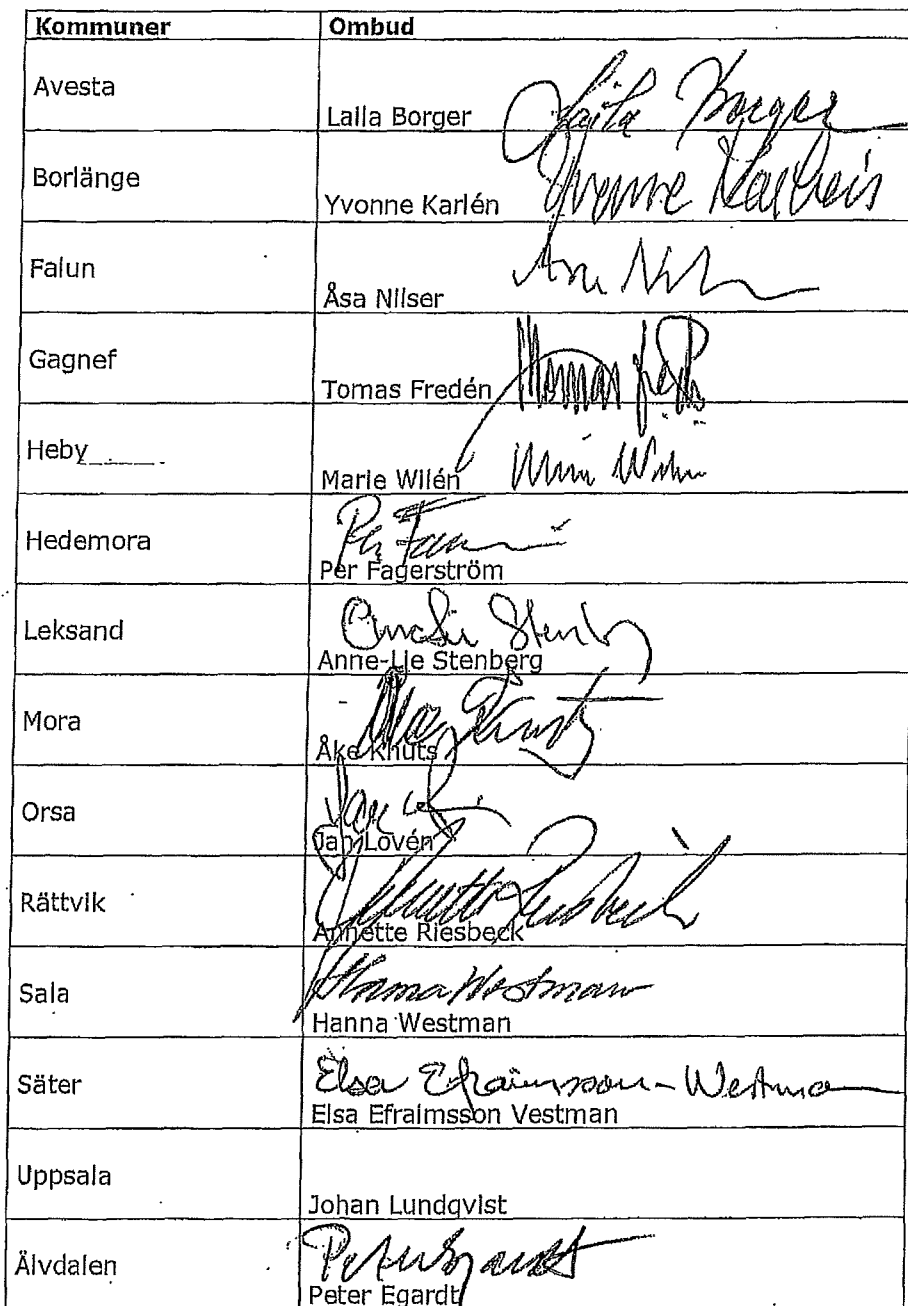 Kommuner Ombud
Avesta
Laila Borger
Laila Borger
Borlänge
Yvonne Karlén
Yvonne
Falun
Åsa Nilser
Gagnef
Tomas Fredén
Heby
Marie Wilén
Hedemora
Per
Per Fagerström
Leksand
Anne-Lie Stenberg
Mora
Åke Knuts
Orsa
Jan
Jan Lovén
Rättvik
Annette Riesbeck
Annette Riesbeck
Sala
Hanna Westman
Hanna Westman
Säter
Elsa Efraimsson-Westman
Elsa Efraimsson Vestman
Uppsala
Johan Lundqvist
Älvdalen
Peter Egardt
Peter Egardt